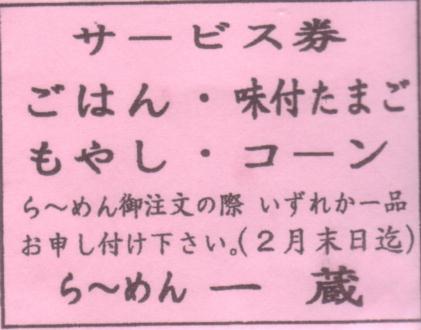 サービス券
ごはん・味付たまご
もやし・コーン
ら～めん御注文の際 いずれか一品
お申し付け下さい。(2月末日迄)
ら～めん 一 蔵